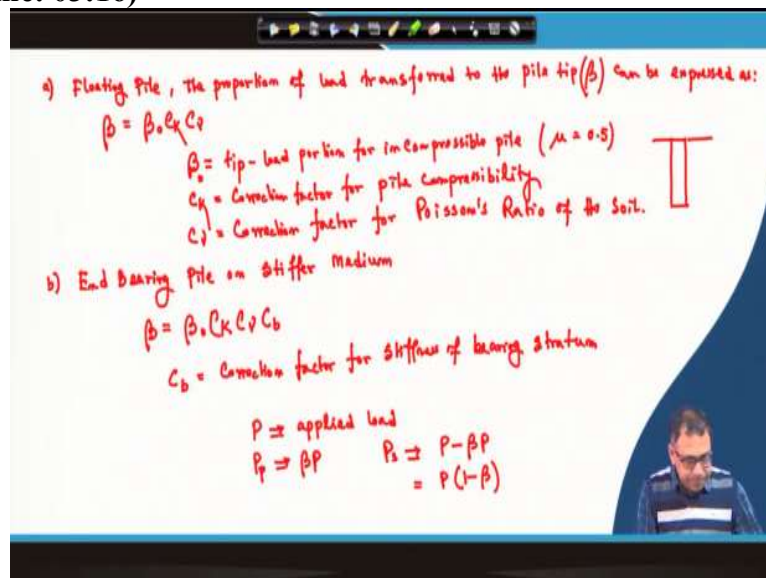 a) Floating Pile, The proportion of load transferred to the pile tip (β) can be expressed as:
β = β₀ C_K C_ν
β₀ = tip-load portion for incompressible pile (μ = 0.5)
C_K = Correction factor for pile compressibility
C_ν = Correction factor for Poisson's Ratio of the Soil.
b) End Bearing Pile on Stiffer Medium
β = β₀ C_K C_ν C_b
C_b = Correction factor for stiffness of bearing stratum
P ⇒ applied load
P_p ⇒ βP P_s ⇒ P-βP
= P(1-β)